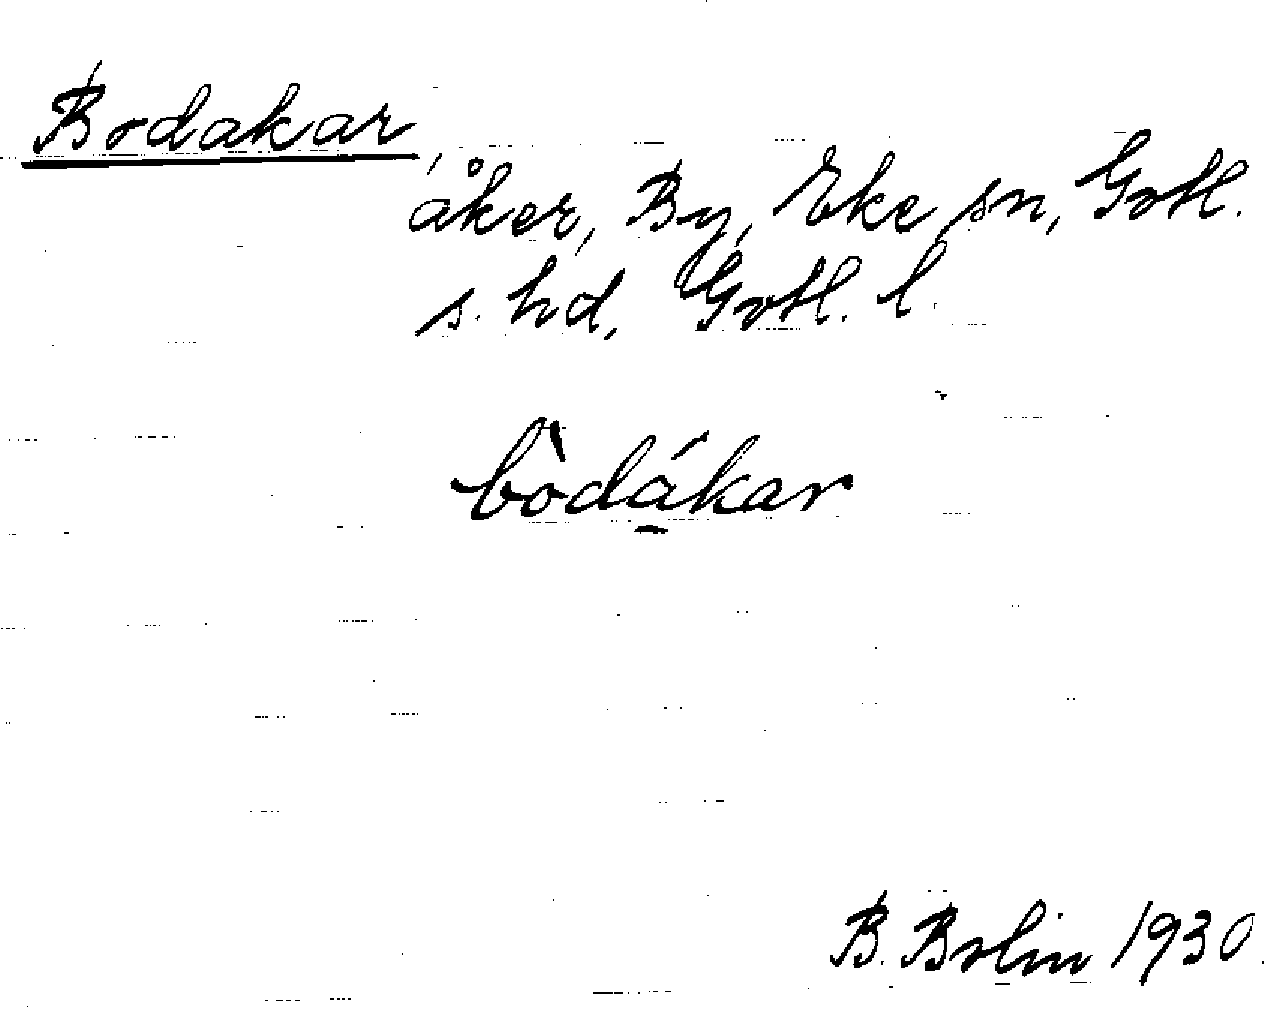 Bodakar,
åker, By, Eke sn, Gotl.
s. hd, Gotl. l.
bòdá̱kar
B. Bolin 1930.